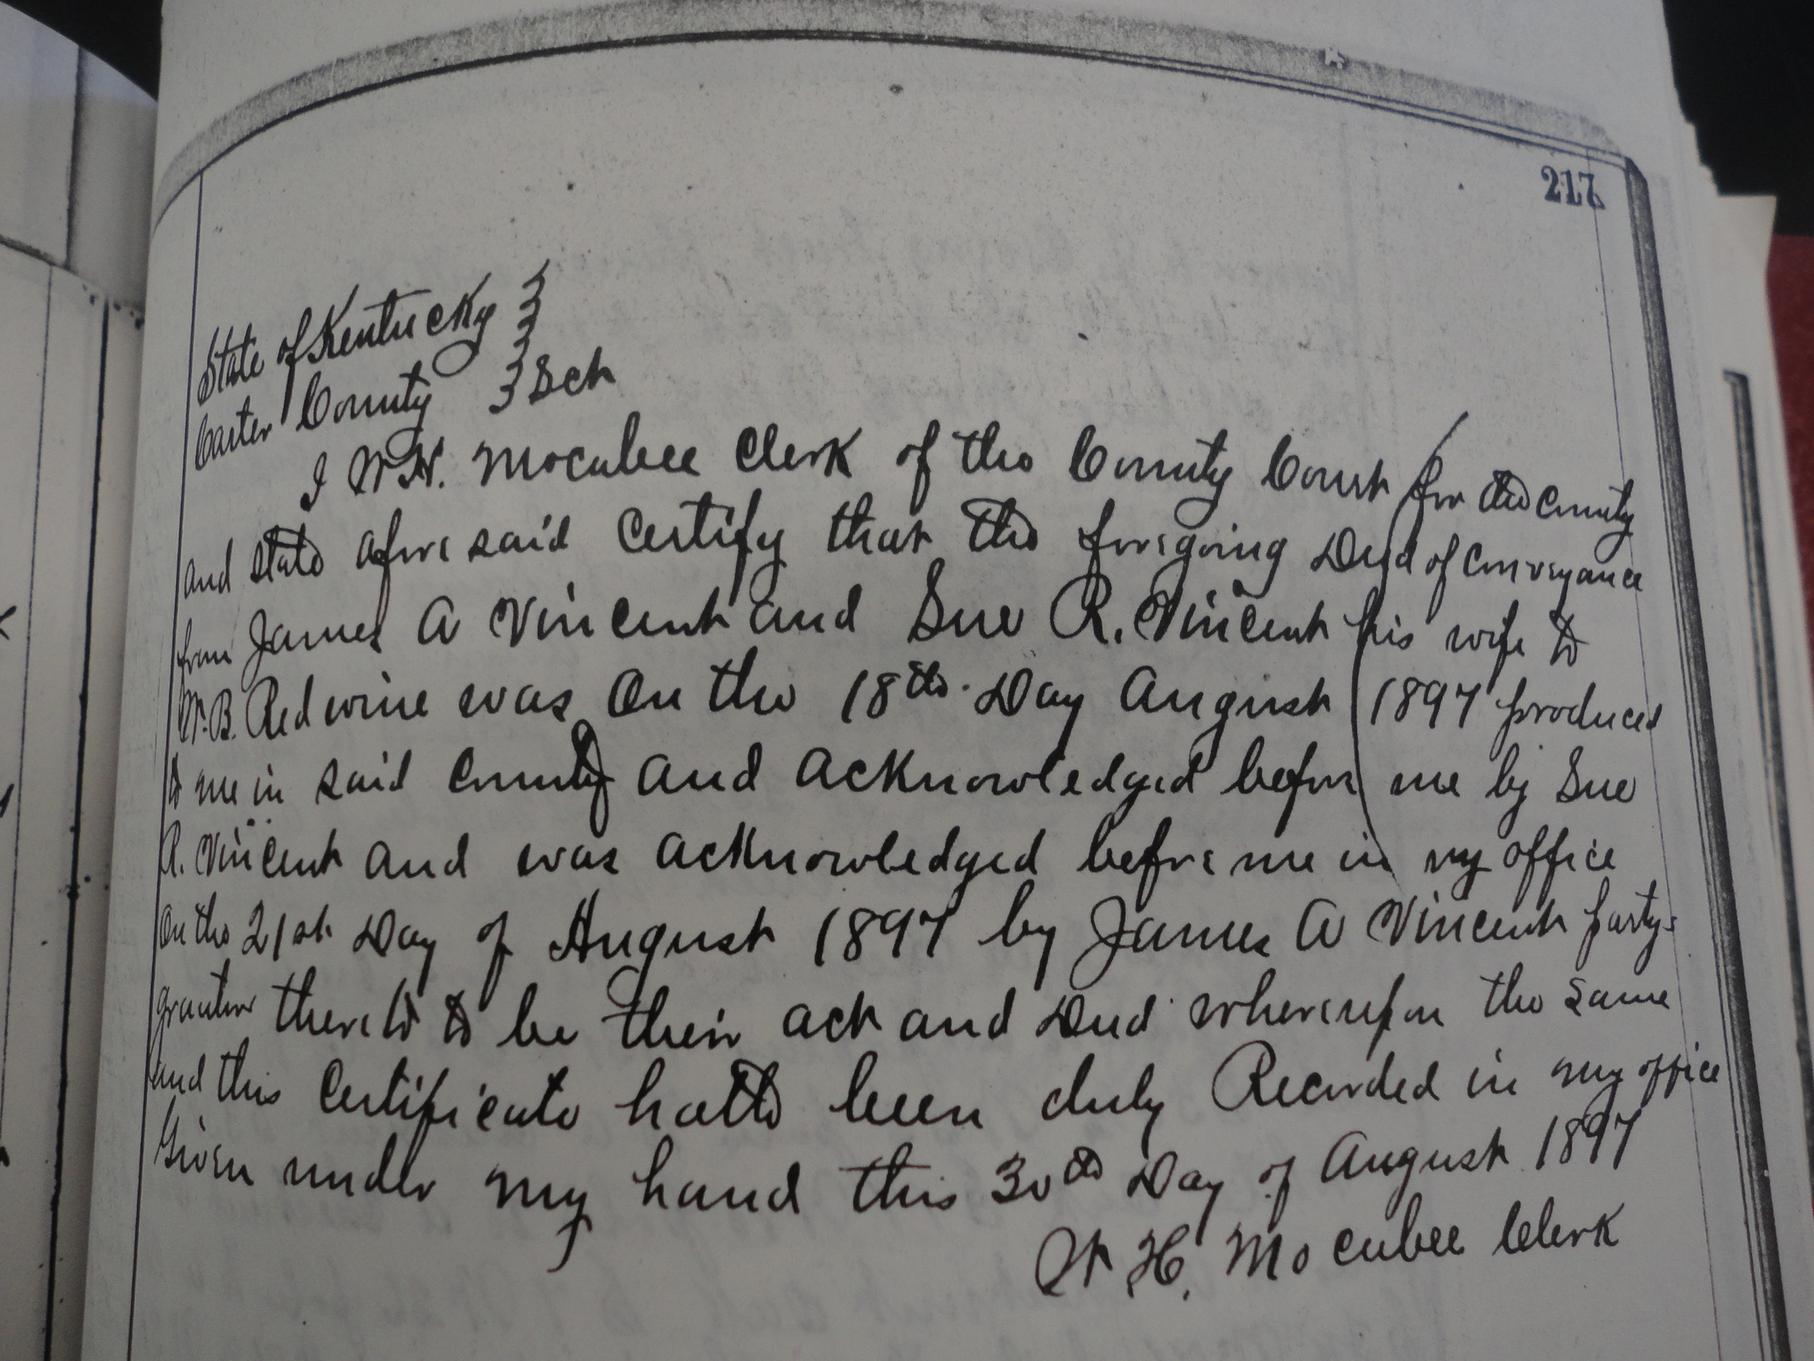 217
State of Kentucky }
Carter County } Sct
I W.H. Mocabee Clerk of the County Court for the County
and State afore said Certify that the foregoing Deed of Conveyance
from James A Vincent and Sue R. Vincent his wife to
W.B. Redwine was On the 18th Day August 1897 produced
to me in said County and acknowledged before me by Sue
R. Vincent and was acknowledged before me in my office
On the 21st Day of August 1897 by James A Vincent party-
grantor thereto to be their act and Deed whereupon the same
and this Certificate hath been duly Recorded in my office
Given under my hand this 30th Day of August 1897
W H. Mocabee Clerk